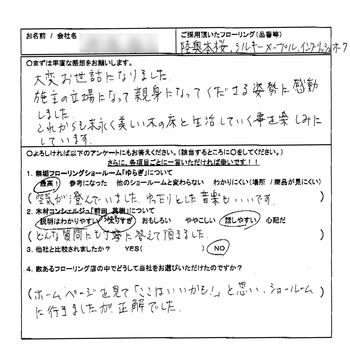 お名前 / 会社名
ご採用頂いたフローリング（品番等）
陸奥本桜,シルキーメープル,イングリッシュオーク
○まずは率直な感想をお願いします。
大変お世話になりました。
施主の立場になって親身になってくださる姿勢に感動
しました。
これからも末永く美しい木の床と生活していく事を楽しみに
しています。
○よろしければ以下のアンケートにもお答えください。（該当するところに○をしてください。）
さらに、各項目ごとに一言いただければ幸いです！！
1. 無垢フローリングショールーム「ゆらぎ」について
最高！ 参考になった 他のショールームと変わらない わかりにくい（場所 / 商品が見にくい）
（空気が澄んでいました。ゆったりとした音楽もいいです。）
2. 木材コンシェルジュ「前田 英樹」について
説明はわかりやすい 気さくすぎ おもしろい ややこしい 話しやすい 心配だ
（どんな質問にも丁寧に答えて頂きました）
3. 他社と比較されましたか？ YES（ ） NO
4. 数あるフローリング店の中でどうして当社をお選びいただけたのですか？
（ホームページを見て「ここはいいかも！」と思い、ショールーム
に行きましたが正解でした。）